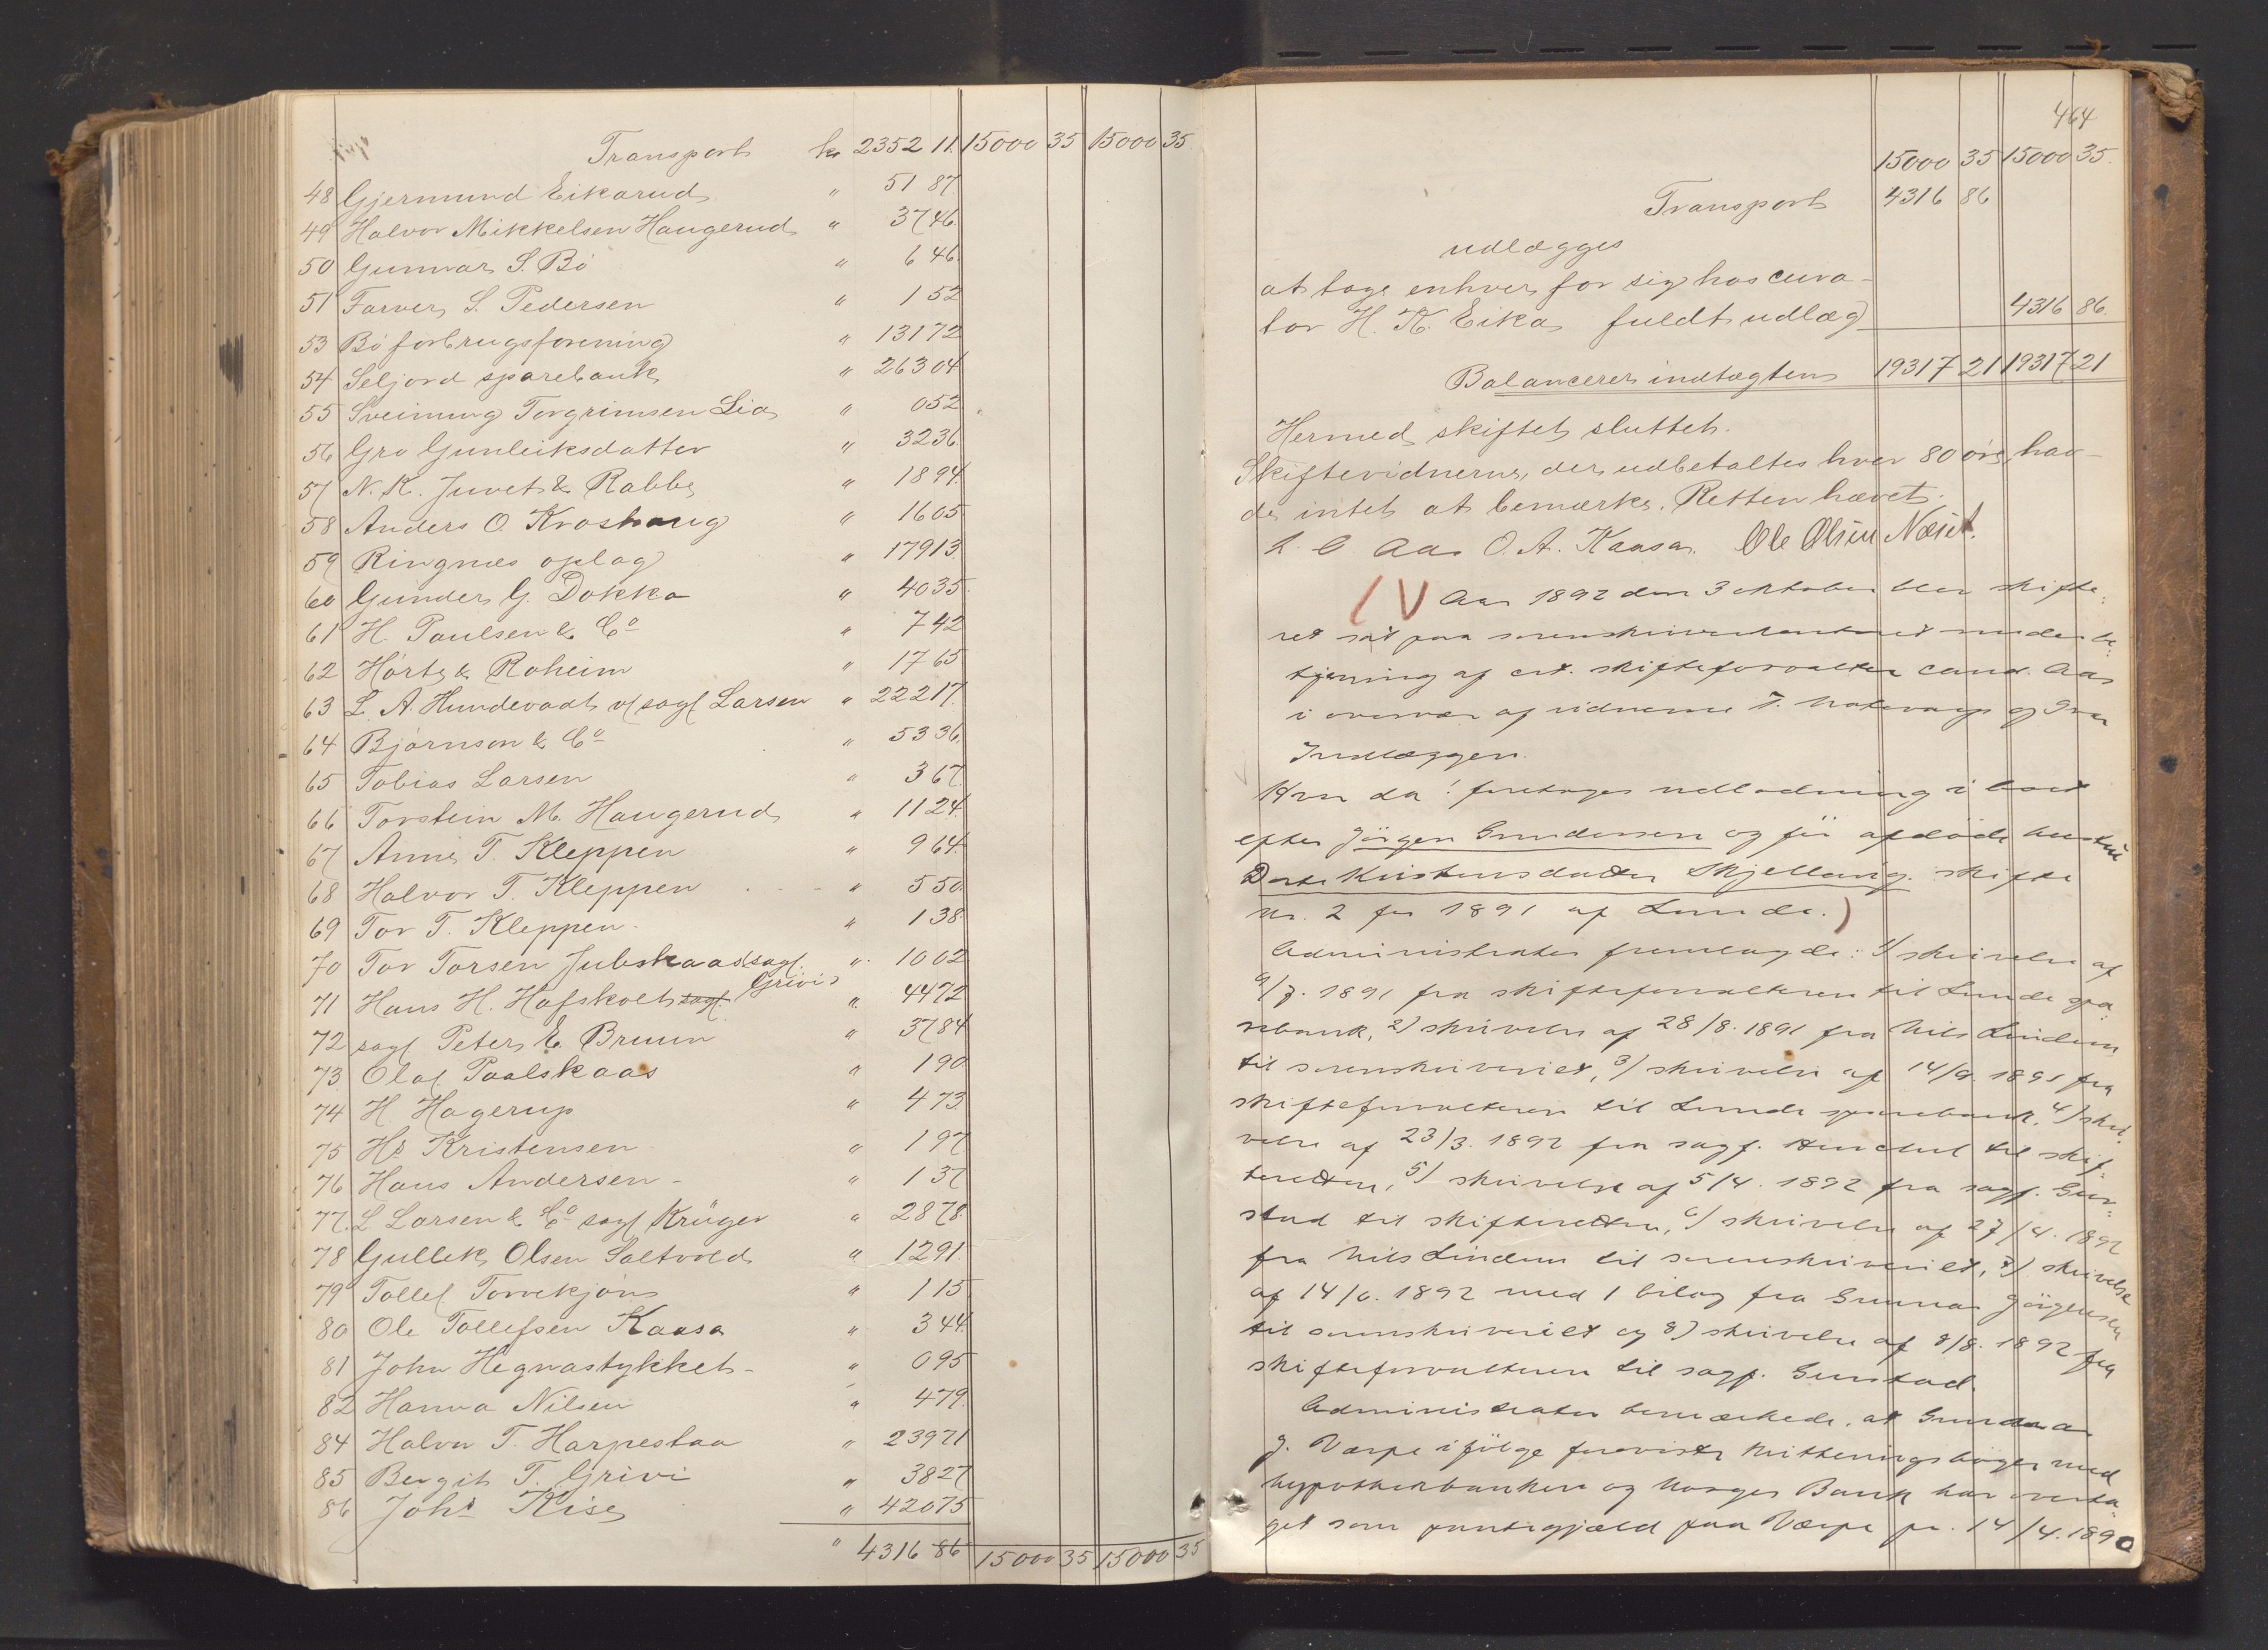 Transport kr 2352 11. 15000 35 15000 35.
48 Gjermund Eikarud " 51 87
49 Halvor Mikkelsen Haugerud " 37 46.
50 Gunnar S. Bö " 6 46.
51 Farver S. Pedersen " 1 52
53 Bö forbrugsforening " 131 72
54 Seljord sparebank " 263 04
55 Sveinung Torgrimsen Lia " 0 52
56 Gro Gunleiksdatter " 32 36
57 N. K. Juvet & Rabbe " 18 94
58 Anders O. Kroshaug " 16 05
59 Ringnes oplag " 179 13
60 Gunder G. Dokka " 40 35
61 H. Paulsen & Co " 7 42
62 Hörte & Roheim " 17 65
63 L. A. Hundevadt v/ sagf Larsen " 222 17.
64 Björnson & Co " 53 36
65 Tobias Larsen " 3 67
66 Torstein M. Haugerud " 11 24
67 Anne T. Kleppen " 9 64
68 Halvor T. Kleppen " 5 50
69 Tor T. Kleppen " 1 38
70 Tor Torsen Jubskaas sagf. Grivi " 10 02
71 Hans H. Hafskolt sagf. " 44 72
72 sagf Peter E. Bruun " 37 84
73 Olaf Paalskaas " 1 90
74 H. Hagerup " 4 73
75 Hs Kristensen " 1 97
76 Hans Andersen " 1 37
77. L. Larsen & Co sagf Krüger " 28 78
78 Gullek Olsen Saltvold " 12 91.
79 Tollef Torvekjøns " 1 15
80 Ole Tollefsen Kaasa " 3 44
81 John Hegnastykket " 0 95
82 Hanna Nilsen " 4 79
84 Halvor T. Harpestaa " 239 71
85 Bergit T. Grivi " 38 27
86 Johs Kise " 420 75
" 4316 86 15000 35 15000 35
464
15000 35 15000 35.
Transport 4316 86
udlægges
at tage enhver for sig hos cura-
tor H. K. Eika fuldt udlæg 4316 86.
Balancerer indtægten 19317 21 19317 21
Hermed skiftet sluttet.
Skiftevidnerne, der udbetaltes hver 80 öre, hav-
de intet at bemærke. Retten hævet.
L. C Aas O. A. Kaasa. Ole Olsen Næset.
Aar 1892 den 3 oktober blev skifte-
ret sat paa sorenskriverkontoret under be-
tjening af cst. skifteforvalter cand. Aas
i overvær af vidnerne T. og Iver
Indlæggen.
Hvor da: foretages udlodning i boet
efter Jörgen Gundersen og för afdöde hustru
Dorte Kistensdatter Skjellaug. skifte
Nr. 2 for 1891 af Lunde.)
Administrator fremlagde: 1) skrivelse af
9/7. 1891 fra skifteforvalteren til Lunde spa-
rebank, 2) skrivelse af 28/8. 1891 fra Nils Lindem
til sorenskriveriet, 3) skrivelse af 14/9. 1891 fra
skifteforvalteren til Lunde sparebank, 4) skri-
velse af 23/3. 1892 fra sagf. til skif-
teretten, 5) skrivelse af 5/4. 1892 fra sagf. Gun-
stad til skifteretten, 6) skrivelse af 27/4. 1892
fra Nils Lindem til sorenskriveriet, 7) skrivelse
af 14/6. 1892 med 1 bilag fra Gunnar Jörgensen
til sorenskriveriet og 8) skrivelse af 8/8. 1892 fra
skifteforvalteren til sagf. Gunstad.
Administrator bemærkede, at
J. Værpe ifölge foreviste kvitteringsböger med
hypothekbanken og Norges Bank har overta-
get som pantegjæld paa Værpe pr. 14/4. 1890